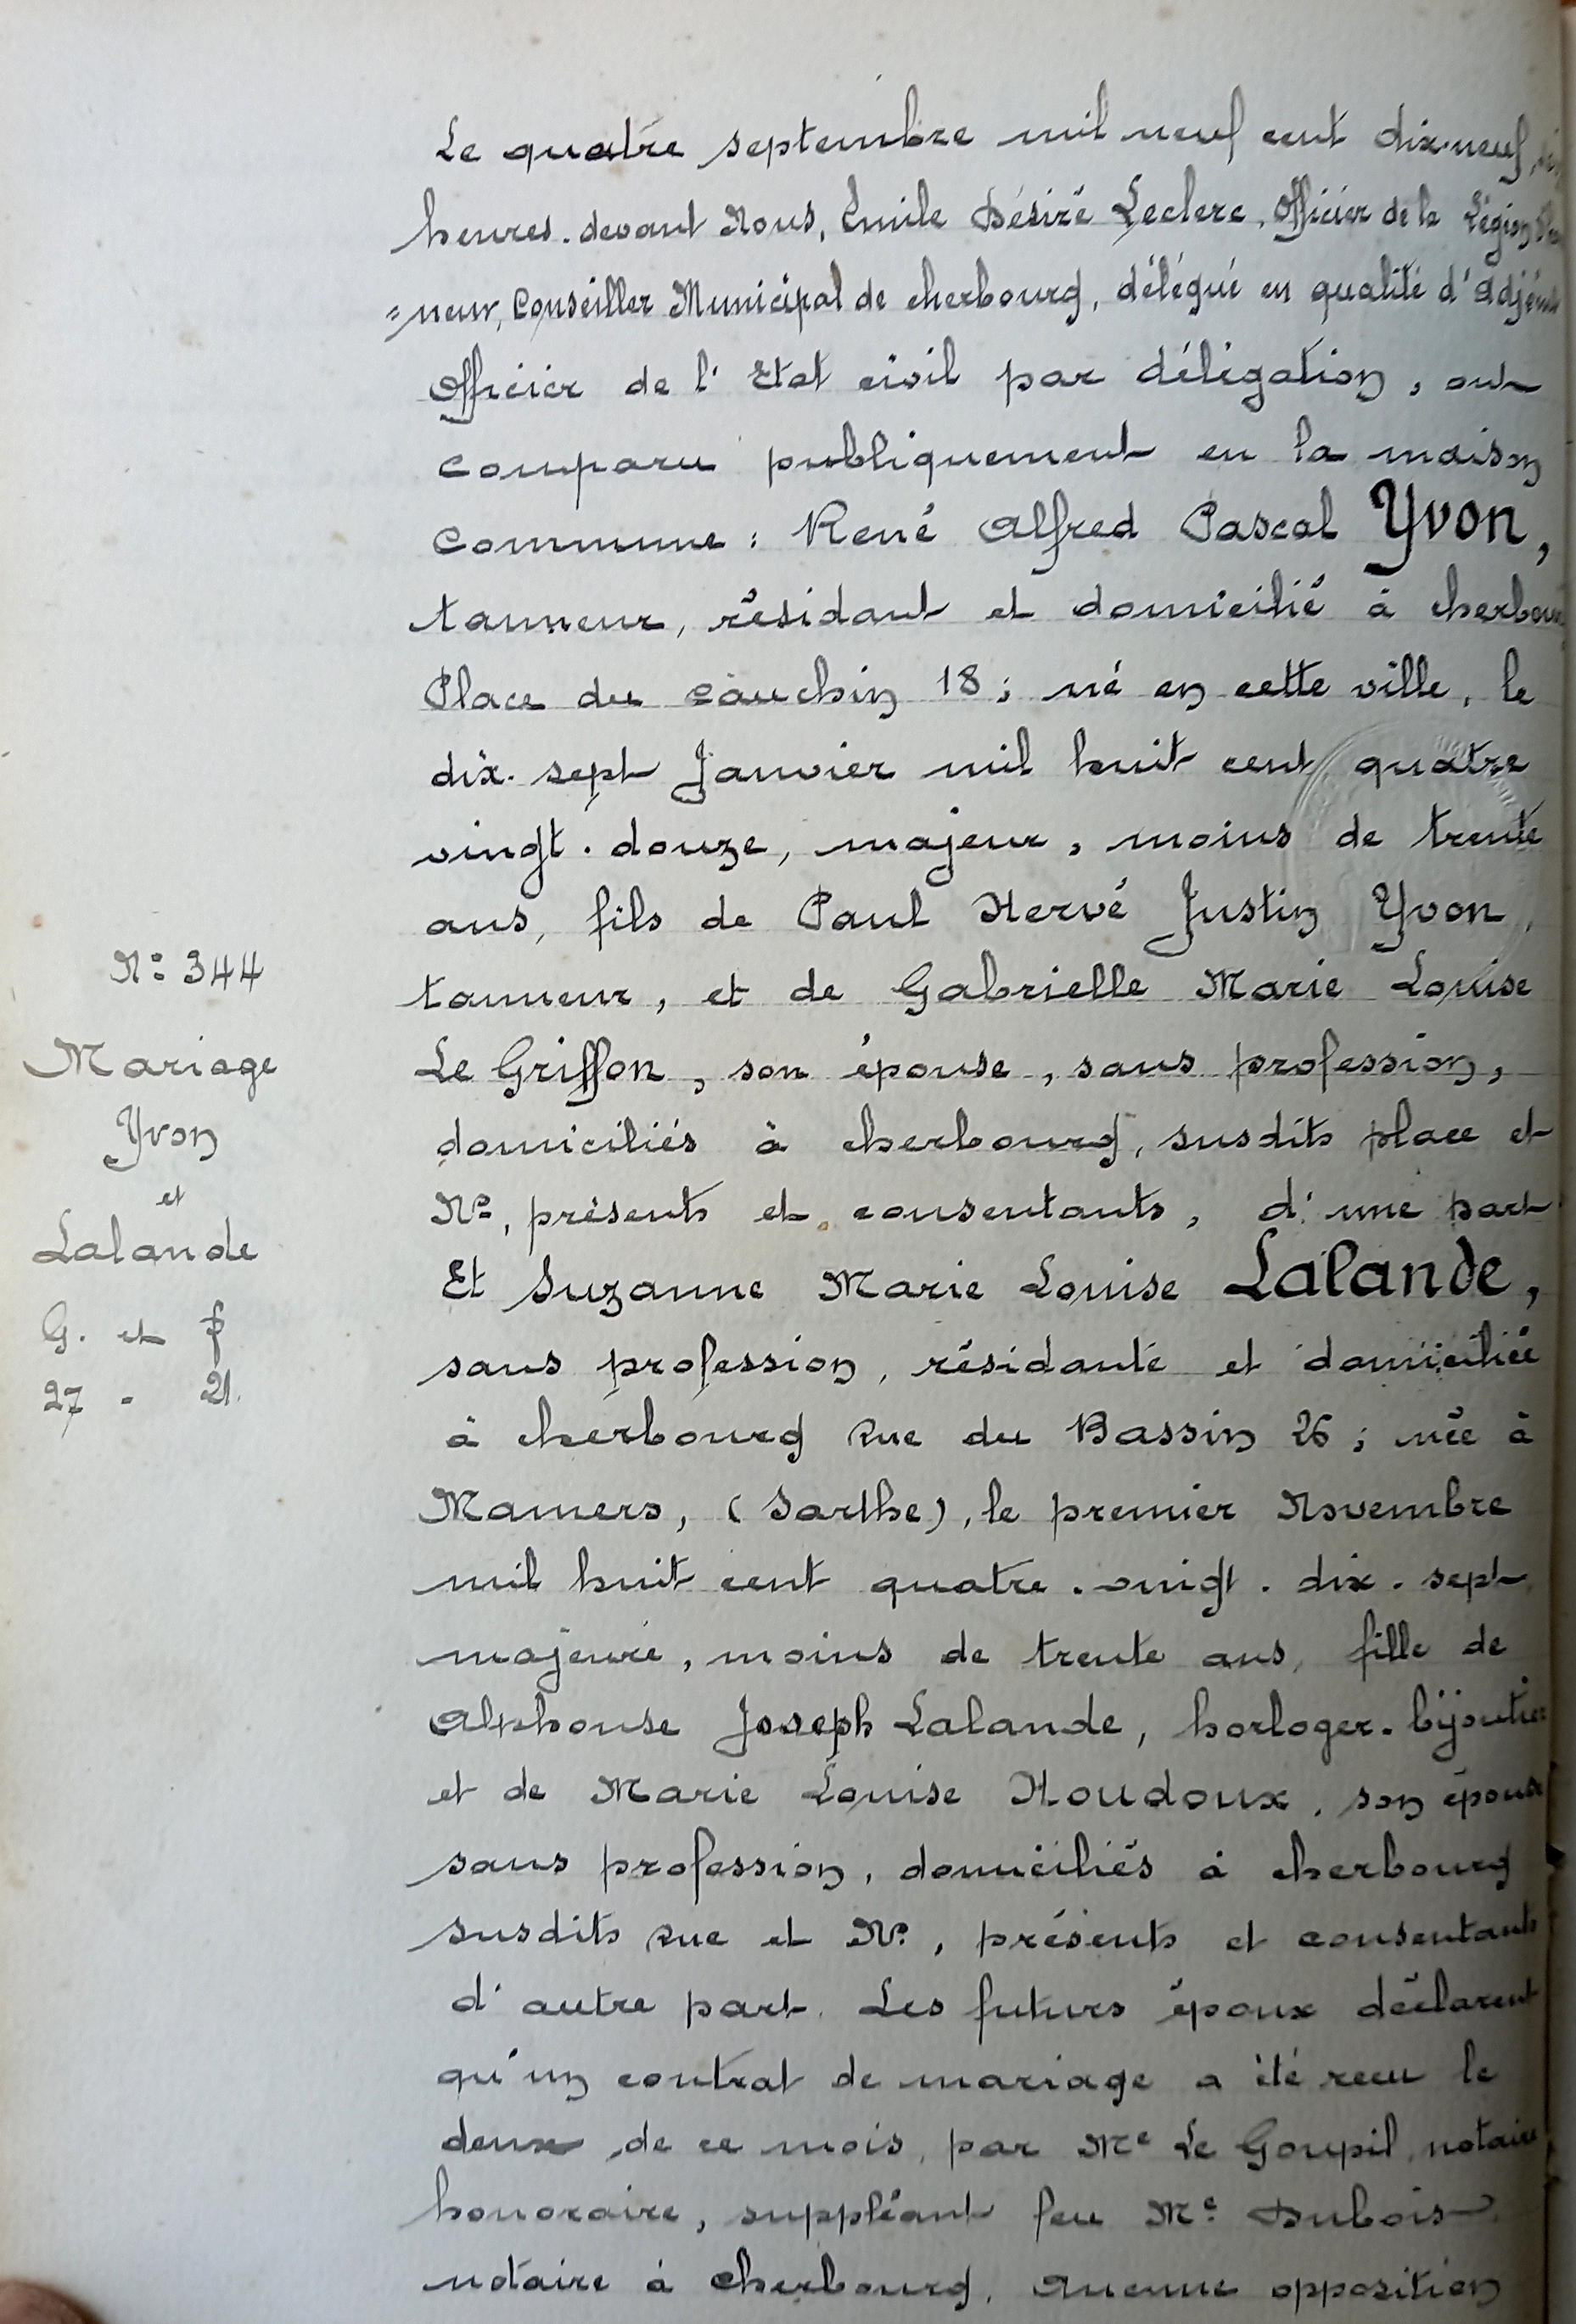 Le quatre septembre mil neuf cent dix-neuf,
heures. devant Nous, Emile Désiré Leclerc, Officier de la Légion
=neur, Conseiller Municipal de cherbourg, délégué en qualité d'adjoint
Officier de l'Etat civil par délégation, ont
comparu publiquement en la maison
commune : René Alfred Pascal Yvon,
tanneur, résidant et domicilié à cherbourg
Place du cauchin 18 ; né en cette ville, le
dix. sept Janvier mil huit cent quatre
vingt. douze, majeur, moins de trente
ans, fils de Paul Hervé Justin Yvon,
N° 344
tanneur, et de Gabrielle Marie Louise
Mariage
Le Griffon, son épouse, sans profession,
Yvon
domiciliés à cherbourg, susdits place et
et
N°, présents et consentants, d'une part
Lalande
Et Suzanne Marie Louise Lalande,
G. et f
sans profession, résidante et domiciliée
27 - 21.
à cherbourg Rue du Bassin 26 ; née à
Mamers, (Sarthe), le premier Novembre
mil huit cent quatre. vingt. dix. sept
majeure, moins de trente ans, fille de
Alphonse Joseph Lalande, horloger. bijoutier
et de Marie Louise Houdoux, son épouse
sans profession, domiciliés à cherbourg
susdits Rue et N°, présents et consentants
d'autre part. Les futurs époux déclarent
qu'un contrat de mariage a été recu le
deux de ce mois, par Me Le Goupil, notaire
honoraire, suppléant feu Me Dubois,
notaire à Cherbourg. Aucune opposition